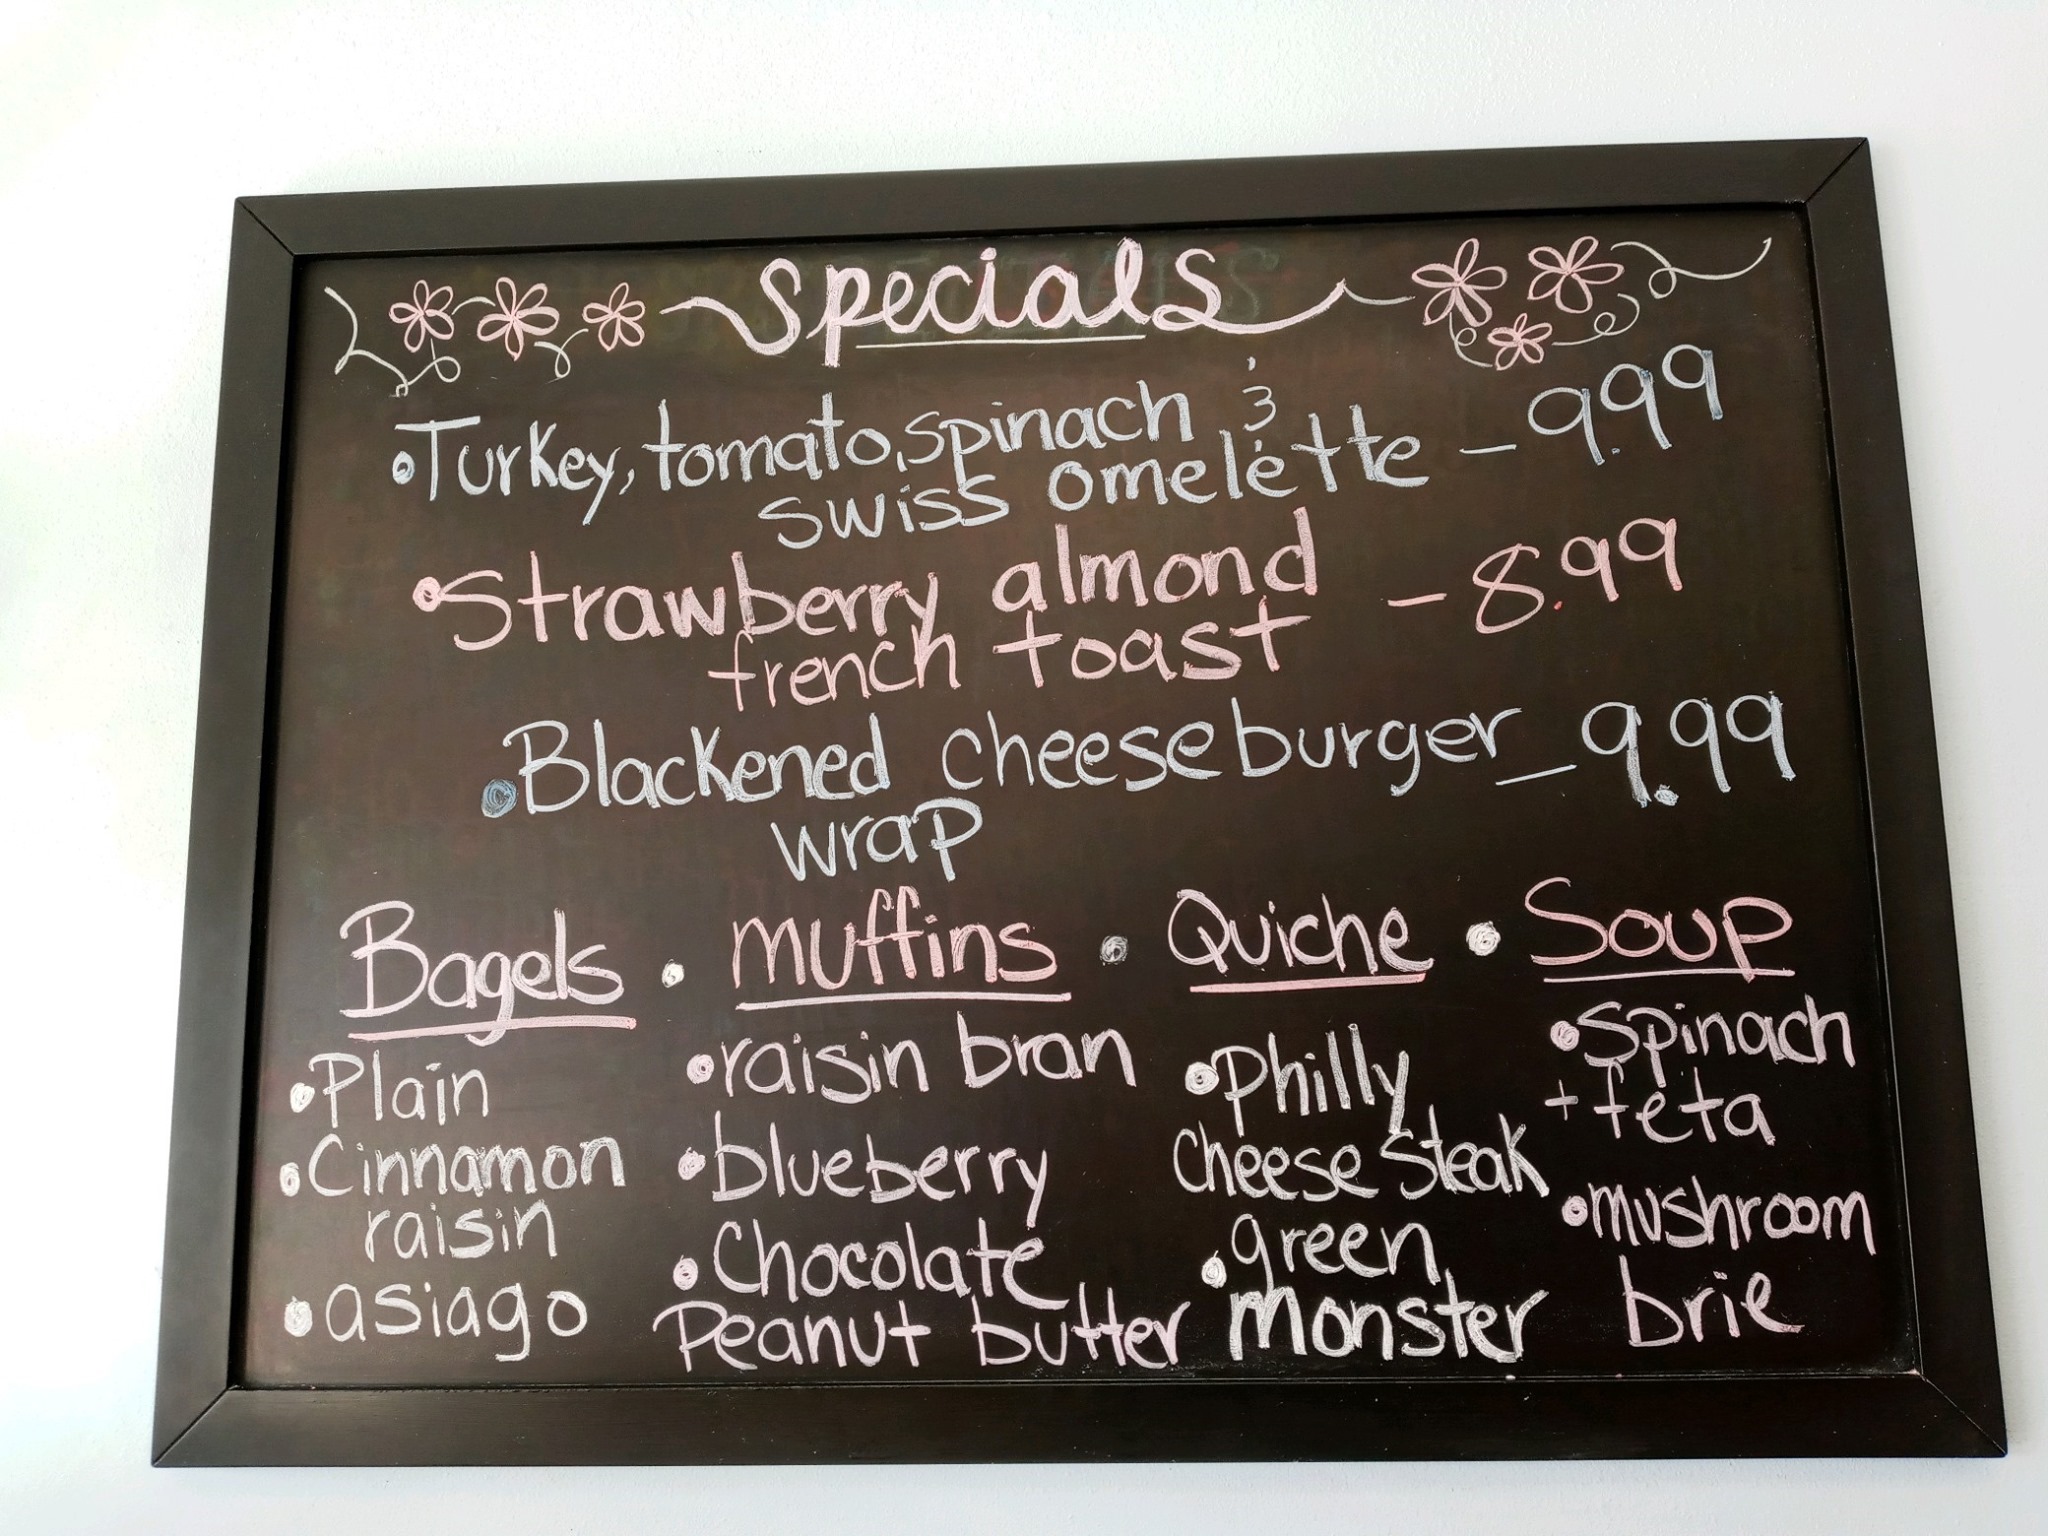 Specials
•Turkey, tomato, spinach &
swiss omelette - 9.99
•Strawberry almond
french toast - 8.99
•Blackened cheeseburger - 9.99
wrap
Bagels • muffins • Quiche • Soup
•Plain
•Cinnamon
raisin
•asiago
•raisin bran
•blueberry
•Chocolate
Peanut butter
•Philly
Cheese Steak
•green
monster
•Spinach
+ feta
•mushroom
brie